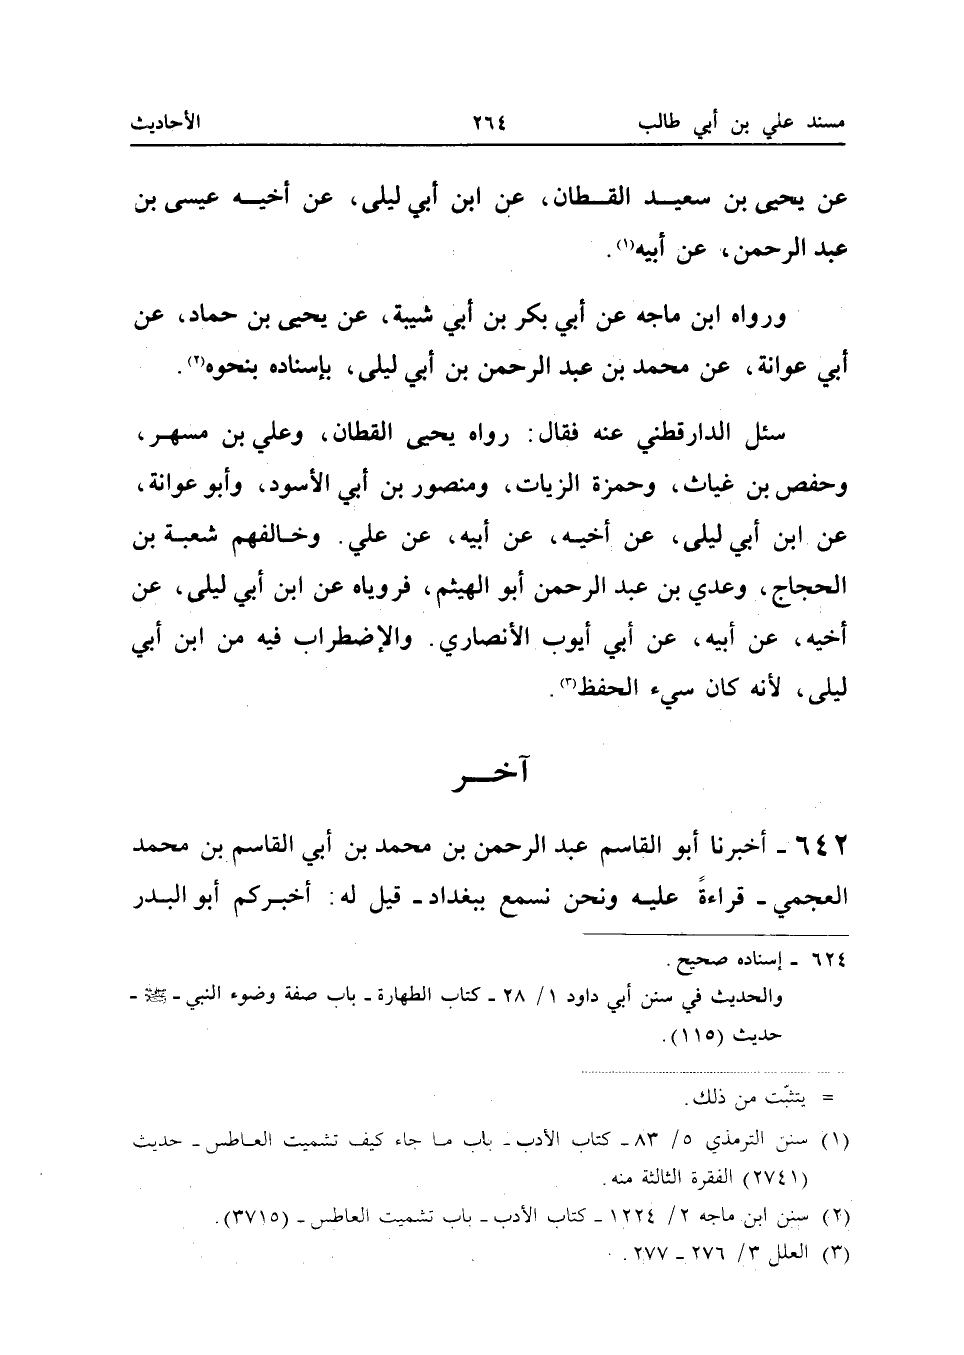 مسند علي بن أبي طالب ٢٦٤ الأحاديث
عن يحيى بن سعيد القطان، عن ابن أبي ليلى، عن أخيه عيسى بن
عبد الرحمن، عن أبيه(١).
ورواه ابن ماجه عن أبي بكر بن أبي شيبة، عن يحيى بن حماد، عن
أبي عوانة، عن محمد بن عبد الرحمن بن أبي ليلى، بإسناده بنحوه(٢).
سئل الدارقطني عنه فقال: رواه يحيى القطان، وعلي بن مسهر،
وحفص بن غياث، وحمزة الزيات، ومنصور بن أبي الأسود، وأبو عوانة،
عن ابن أبي ليلى، عن أخيه، عن أبيه، عن علي. وخالفهم شعبة بن
الحجاج، وعدي بن عبد الرحمن أبو الهيثم، فروياه عن ابن أبي ليلى، عن
أخيه، عن أبيه، عن أبي أيوب الأنصاري. والإضطراب فيه من ابن أبي
ليلى، لأنه كان سيء الحفظ(٣).
آخر
٦٤٢ - أخبرنا أبو القاسم عبد الرحمن بن محمد بن أبي القاسم بن محمد
العجمي - قراءةً عليه ونحن نسمع ببغداد - قيل له: أخبركم أبو البدر
٦٢٤ - إسناده صحيح.
والحديث في سنن أبي داود ١/ ٢٨ - كتاب الطهارة - باب صفة وضوء النبي - ﷺ -
حديث (١١٥).
= يتثبّت من ذلك.
(١) سنن الترمذي ٥/ ٨٣ - كتاب الأدب - باب ما جاء كيف تشميت العاطس - حديث
(٢٧٤١) الفقرة الثالثة منه.
(٢) سنن ابن ماجه ٢/ ١٢٢٤ - كتاب الأدب - باب تشميت العاطس - (٣٧١٥).
(٣) العلل ٣/ ٢٧٦ - ٢٧٧.